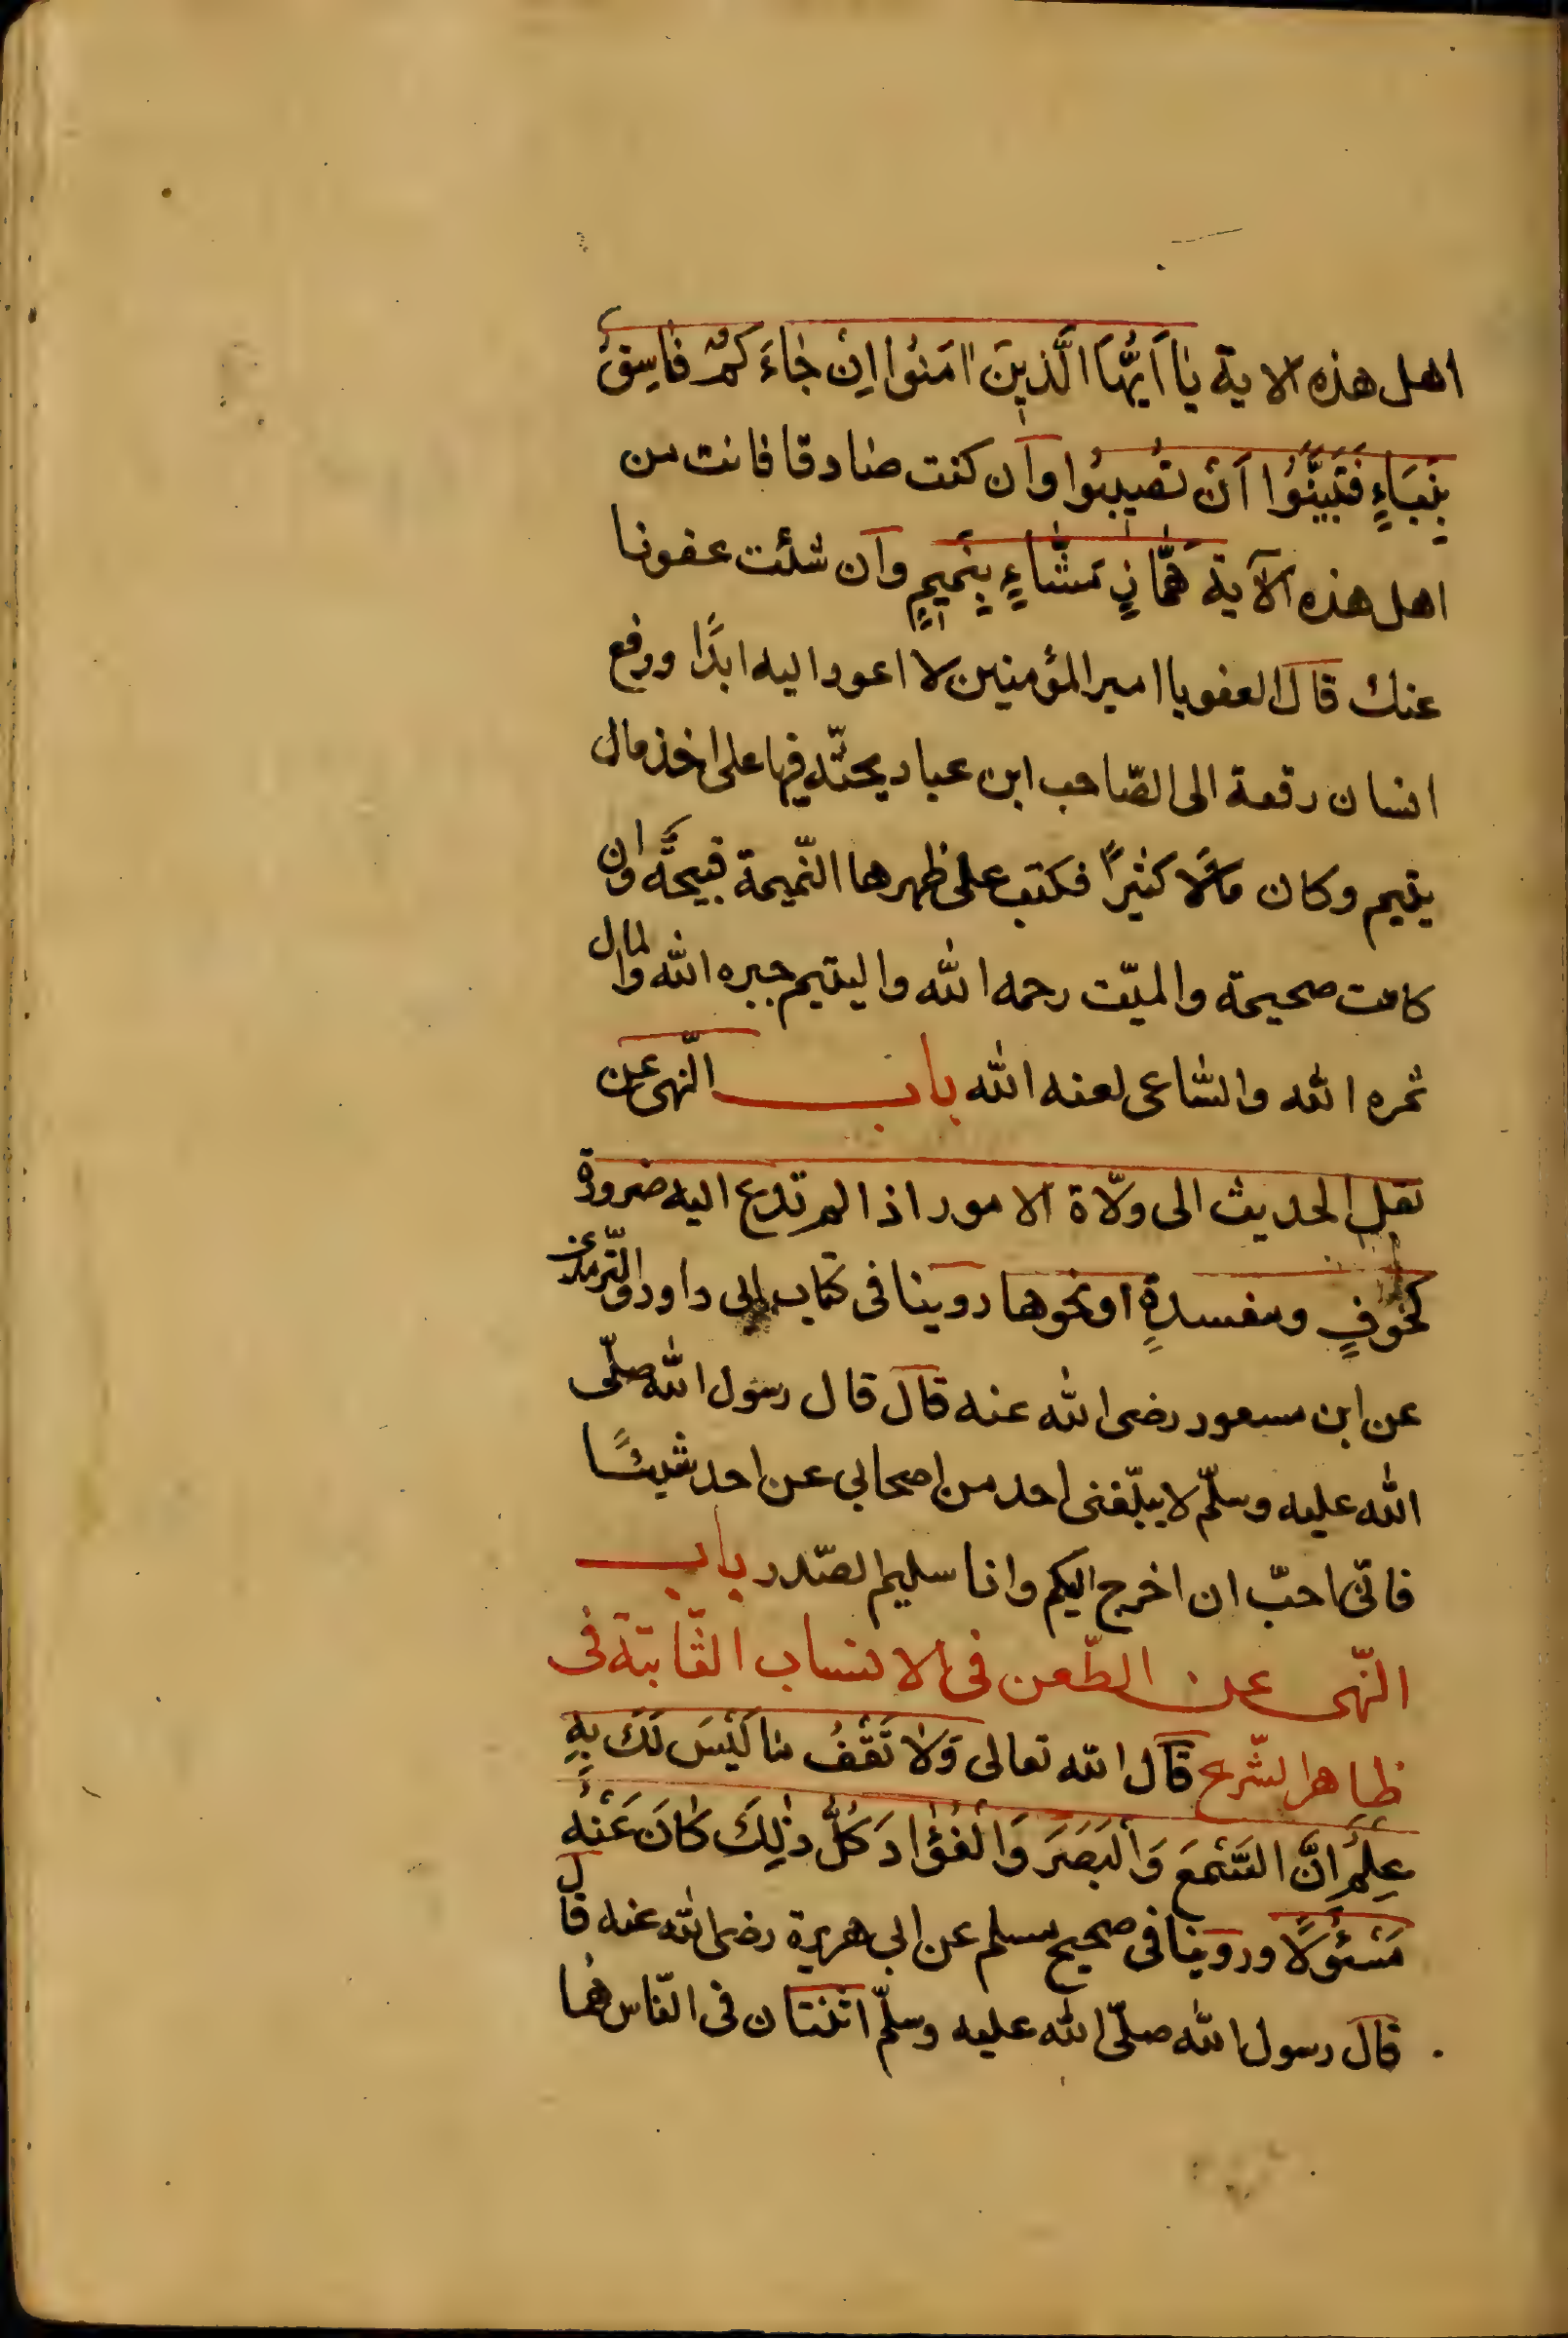 اهل هذه الاية يٰا اَيُّهَا الَّذِينَ اٰمَنُوا اِنْ جٰاءَكُمْ فٰاسِقٌ
بِنَبَاءٍ فَتَبَيَّنُوا اَنْ تُصِيبُوا وان كنت صادقا فانت من
اهل هذه الآية هَمَّازٍ مَشّٰاءٍ بِنَمِيمٍ وان شئت عفونا
عنك قال العفو يا امير المؤمنين لا اعود اليه ابدًا ورفع
انسان رقعة الى الصّاحب ابن عباد يحثّه فيها على اخذ مال
يتيم وكان مالًا كثيرًا فكتب على ظهرها النّميمة قبيحةٌ وان
كانت صحيحة والميّت رحمه الله واليتيم جبره الله والمال
ثمره الله والسّاعى لعنه الله باب النّهى عن
نقل الحديث الى ولّاة الامور اذا لم تدع اليه ضرورة
كخوفٍ ومفسدةٍ او نحوها روينا فى كتاب ابى داود والتّرمذى عن
عن ابن مسعود رضى الله عنه قال قال رسول الله صلّى
الله عليه وسلّم لا يبلّغنى احد من اصحابى عن احد شيئًا
فانّى احبّ ان اخرج اليكم وانا سليم الصّدر باب
النّهى عن الطّعن فى الانساب الثّابتة فى
ظاهر الشّرع قال الله تعالى وَلٰا تَقْفُ مٰا لَيْسَ لَكَ بِهِ
عِلْمٌ اِنَّ السَّمْعَ وَالْبَصَرَ وَالْفُؤٰادَ كُلُّ ذٰلِكَ كٰانَ عَنْهُ
مَسْئُولًا وروينا فى صحيح مسلم عن ابى هريرة رضى الله عنه قال
قال رسول الله صلّى الله عليه وسلّم اثنتان فى النّاس هُما